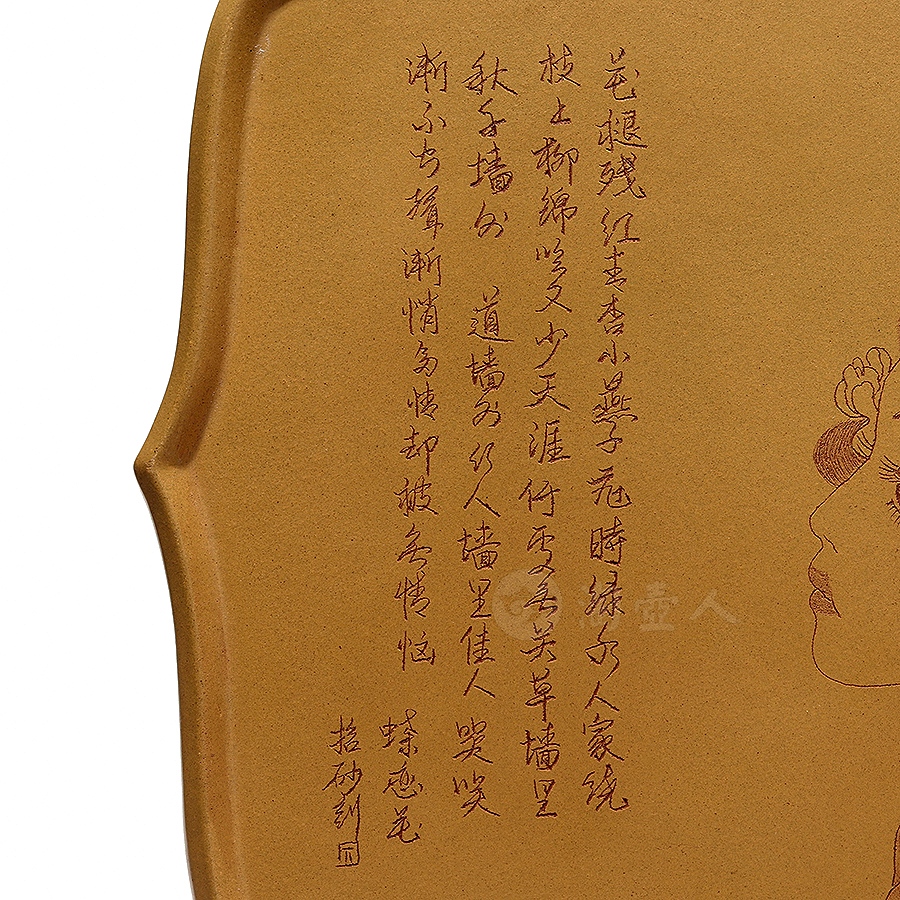 花褪残红青杏小燕子飞時绿水人家绕
枝上柳绵吹又少天涯何处无芳草墙里
秋千墙外 道墙外行人墙里佳人 笑笑
漸不闻声漸悄多情却被无情恼
蝶恋花
拾砂刻
壶人